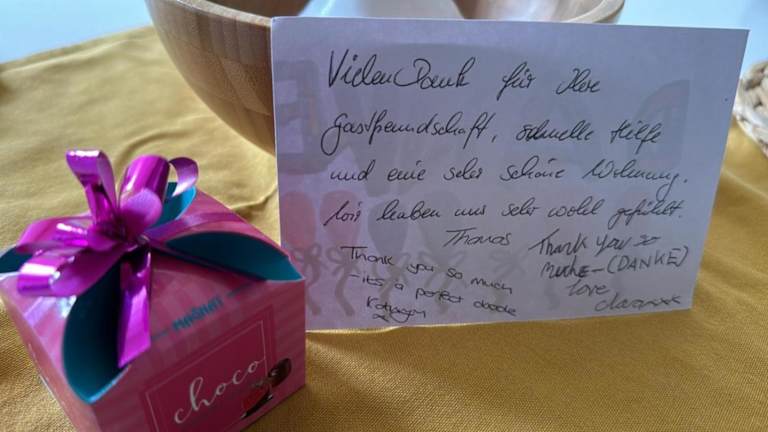 Vielen Dank für Ihre
Gastfreundschaft, schnelle Hilfe
und eine sehr schöne Wohnung.
Wir haben uns sehr wohl gefühlt.
Thomas
Thank you so
much - (DANKE)
love
Thank you so much
- it's a perfect
MAGNAT
choco